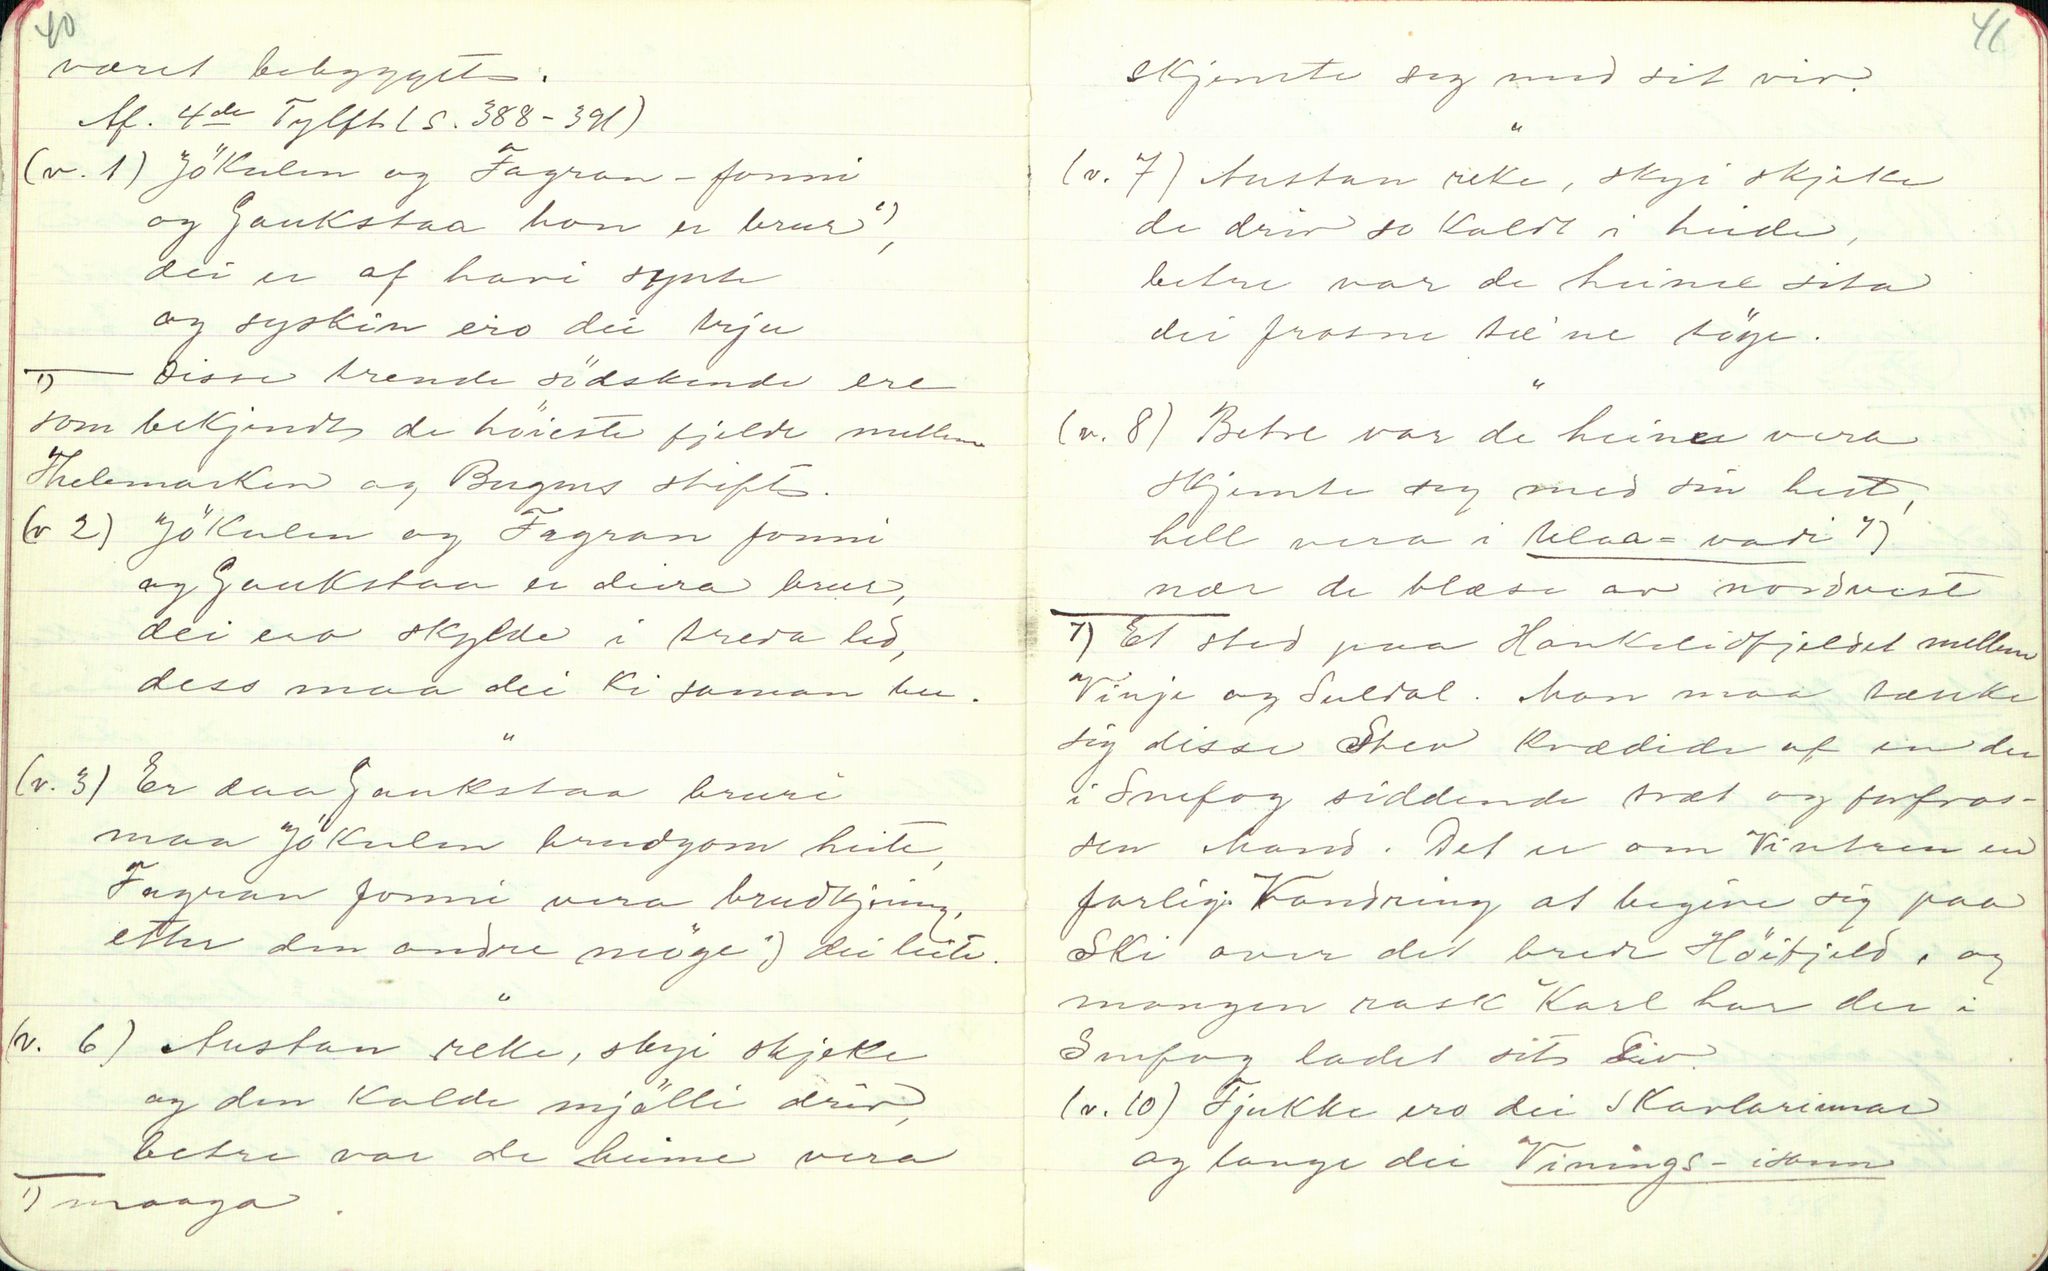 40
været bebygget.
Af. 4de Tylft (S. 388-391)
(v. 1) Jökulen og Fagran-fonni
og Gaukstaa hon er brur 1),
dei er af havi synte
og syskin ero dei trju
1) Disse trende södskende ere
som bekjendt de höieste fjelde mellem
Thelemarken og Bergens stift.
(v 2) Jökulen og Fagran fonni
og Gaukstaa er deira brur,
dei ero skylde i treda led,
dess maa dei ki saman bu.
"
(v. 3) Er daa Gaukstaa bruri
maa Jökulen brudgom heite,
Fagran fonni vera brudkjring,
etter den andre möge 1) dei leite.
"
(v. 6) Austan reke, skyi skjeke
og den kalde mjölli driv,
betre var de heime vera
1) maaga.
41
skjemte seg med sit viv.
"
(v. 7) Austan reke, skyi skjeke
de driv so kaldt i heide,
betre var de heime sita
dei frosne tei'ne töye.
"
(v. 8) Betre var de heime vera
skjemte seg med sin hest,
hell vera i Ulaa-vadi 7)
nær de blæse av nordvest
7) Et sted paa Haukelidfjeldet mellem
Vinje og Suldal. Man maa tænke
sig disse Stev kvædede af en der
i Snefog siddende træt og forfros-
sen Mand. Det er om Vintren en
farlig Vandring at begive sig paa
Ski over det brede Höifjeld, og
mangen rask Karl har der i
Snefog ladet sit Liv.
(v. 10) Tjukke ero dei Skavlarinnar
og lange dei Vinings-isann